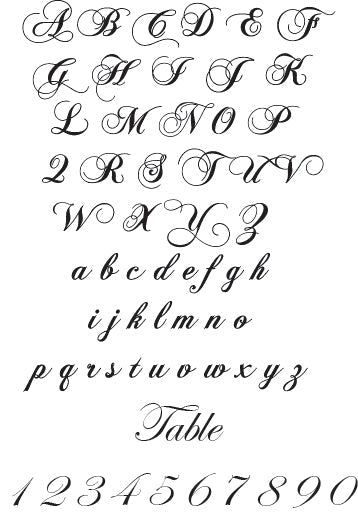 A B C D E F
G H I J K
L M N O P
Q R S T U V
W X Y Z
a b c d e f g h
i j k l m n o
p q r s t u v w x y z
Table
1 2 3 4 5 6 7 8 9 0